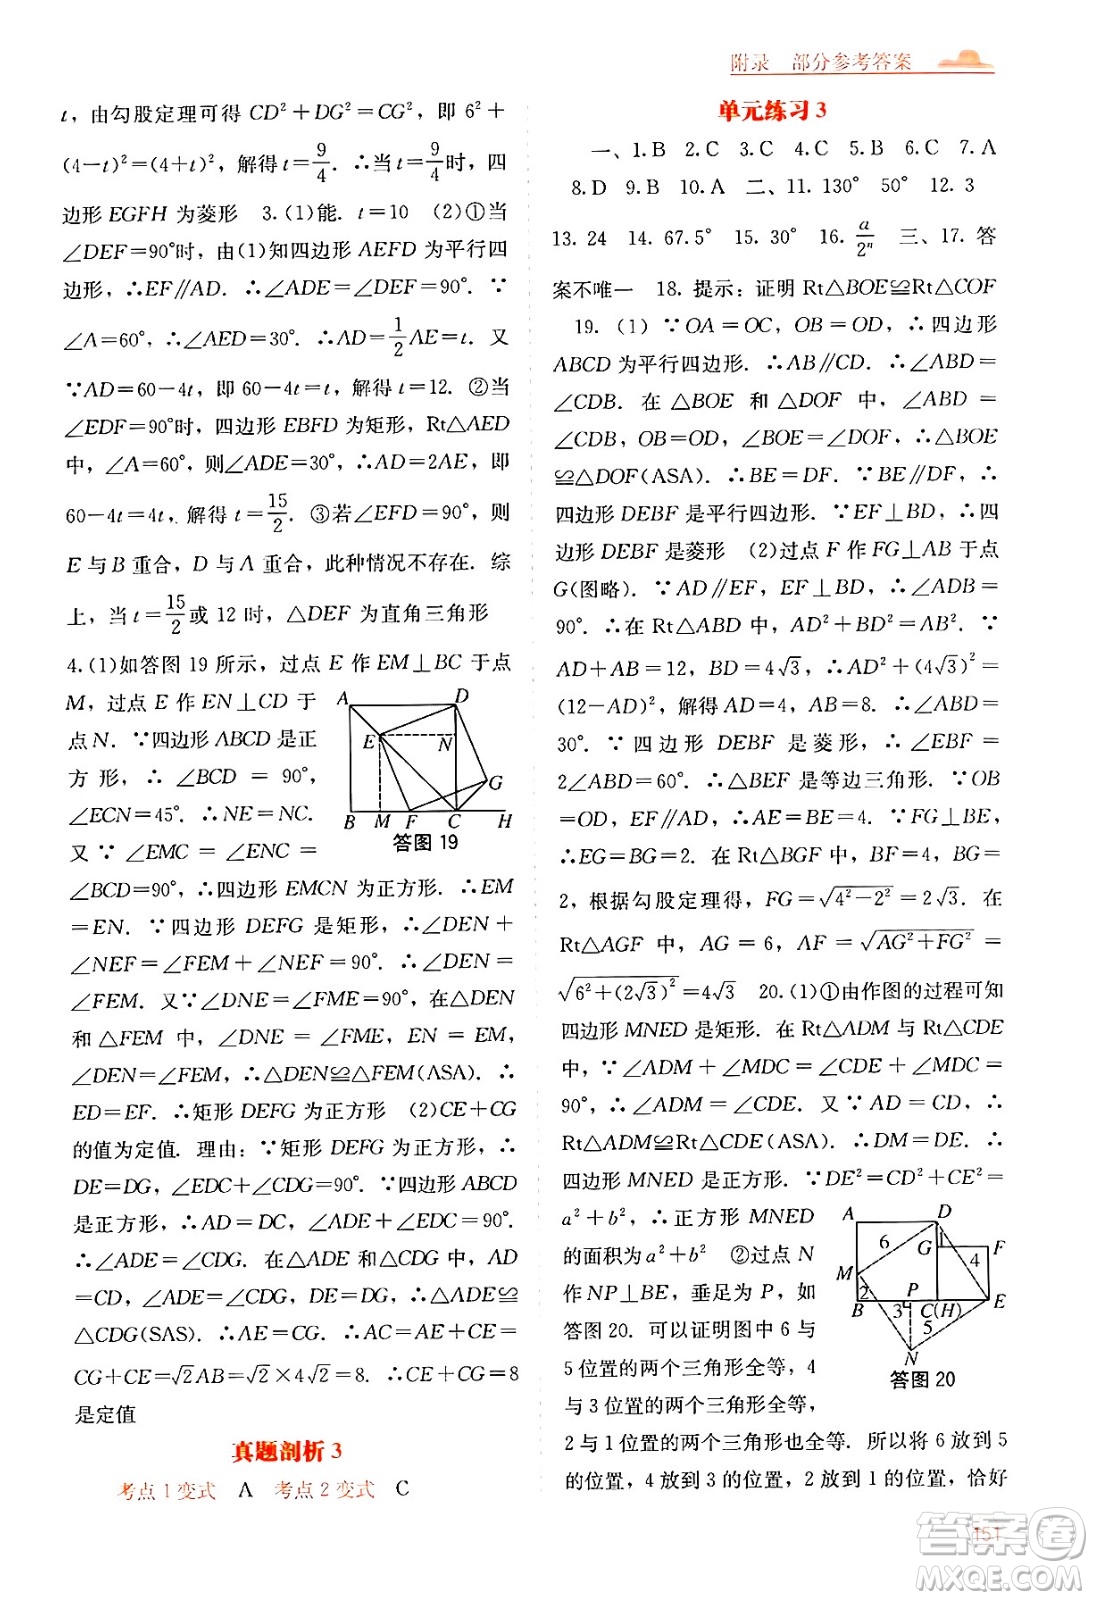 附录 部分参考答案
t，由勾股定理可得 CD²＋DG²＝CG²，即 6²＋
(4－t)²＝(4＋t)²，解得 t＝9/4．∴当 t＝9/4时，四
边形 EGFH 为菱形 3.(1)能．t＝10 (2)①当
∠DEF＝90°时，由(1)知四边形 AEFD 为平行四
边形，∴EF∥AD．∴∠ADE＝∠DEF＝90°．∵
∠A＝60°，∴∠AED＝30°．∴AD＝1/2AE＝t．又
∵AD＝60－4t，即 60－4t＝t，解得 t＝12．②当
∠EDF＝90°时，四边形 EBFD 为矩形，Rt△AED
中，∠A＝60°，则∠ADE＝30°，∴AD＝2AE，即
60－4t＝4t，解得 t＝15/2．③若∠EFD＝90°，则
E 与 B 重合，D 与 A 重合，此种情况不存在．综
上，当 t＝15/2或 12 时，△DEF 为直角三角形
4.(1)如答图 19 所示，过点 E 作 EM⊥BC 于点
M，过点 E 作 EN⊥CD 于
点 N．∵四边形 ABCD 是正
方形，∴∠BCD＝90°，
∠ECN＝45°．∴NE＝NC．
又∵∠EMC＝∠ENC＝
∠BCD＝90°，∴四边形 EMCN 为正方形．∴EM
＝EN．∵四边形 DEFG 是矩形，∴∠DEN＋
∠NEF＝∠FEM＋∠NEF＝90°．∴∠DEN＝
∠FEM．又∵∠DNE＝∠FME＝90°，在△DEN
和△FEM 中，∠DNE＝∠FME，EN＝EM，
∠DEN＝∠FEM，∴△DEN≌△FEM(ASA)．∴
ED＝EF．∴矩形 DEFG 为正方形 (2)CE＋CG
的值为定值．理由：∵矩形 DEFG 为正方形，∴
DE＝DG，∠EDC＋∠CDG＝90°．∵四边形 ABCD
是正方形，∴AD＝DC，∠ADE＋∠EDC＝90°．
∴∠ADE＝∠CDG．在△ADE 和△CDG 中，AD
＝CD，∠ADE＝∠CDG，DE＝DG，∴△ADE≌
△CDG(SAS)．∴AE＝CG．∴AC＝AE＋CE＝
CG＋CE＝√2AB＝√2×4√2＝8．∴CE＋CG＝8
是定值
A D E N G B M F C H
答图 19
真题剖析 3
考点 1 变式 A 考点 2 变式 C
单元练习 3
一、1.B 2.C 3.C 4.C 5.B 6.C 7.A
8.D 9.B 10.A 二、11.130° 50° 12.3
13.24 14.67.5° 15.30° 16.a/2ⁿ 三、17.答
案不唯一 18.提示：证明 Rt△BOE≌Rt△COF
19.(1)∵OA＝OC，OB＝OD，∴四边形
ABCD 为平行四边形．∴AB∥CD．∴∠ABD＝
∠CDB．在△BOE 和△DOF 中，∠ABD＝
∠CDB，OB＝OD，∠BOE＝∠DOF，∴△BOE
≌△DOF(ASA)．∴BE＝DF．∵BE∥DF，∴
四边形 DEBF 是平行四边形．∵EF⊥BD，∴四
边形 DEBF 是菱形 (2)过点 F 作 FG⊥AB 于点
G(图略)．∵AD∥EF，EF⊥BD，∴∠ADB＝
90°．∴在 Rt△ABD 中，AD²＋BD²＝AB²．∵
AD＋AB＝12，BD＝4√3，∴AD²＋(4√3)²＝
(12－AD)²，解得 AD＝4，AB＝8．∴∠ABD＝
30°．∵四边形 DEBF 是菱形，∴∠EBF＝
2∠ABD＝60°．∴△BEF 是等边三角形．∵OB
＝OD，EF∥AD，∴AE＝BE＝4．∵FG⊥BE，
∴EG＝BG＝2．在 Rt△BGF 中，BF＝4，BG＝
2，根据勾股定理得，FG＝√4²－2²＝2√3．在
Rt△AGF 中，AG＝6，AF＝√AG²＋FG²＝
√6²＋(2√3)²＝4√3 20.(1)①由作图的过程可知
四边形 MNED 是矩形．在 Rt△ADM 与 Rt△CDE
中，∵∠ADM＋∠MDC＝∠MDC＋∠CDE＝
90°，∴∠ADM＝∠CDE．又∵AD＝CD，∴
Rt△ADM≌Rt△CDE(ASA)．∴DM＝DE．∴
四边形 MNED 是正方形．∵DE²＝CD²＋CE²＝
a²＋b²，∴正方形 MNED
的面积为 a²＋b² ②过点 N
作 NP⊥BE，垂足为 P，如
答图 20．可以证明图中 6 与
5 位置的两个三角形全等，4
与 3 位置的两个三角形全等，
2 与 1 位置的两个三角形也全等．所以将 6 放到 5
的位置，4 放到 3 的位置，2 放到 1 的位置，恰好
A D 6 G 1 F M 4 2 P B 3 C(H) E 5 N
答图 20
151
答案卷